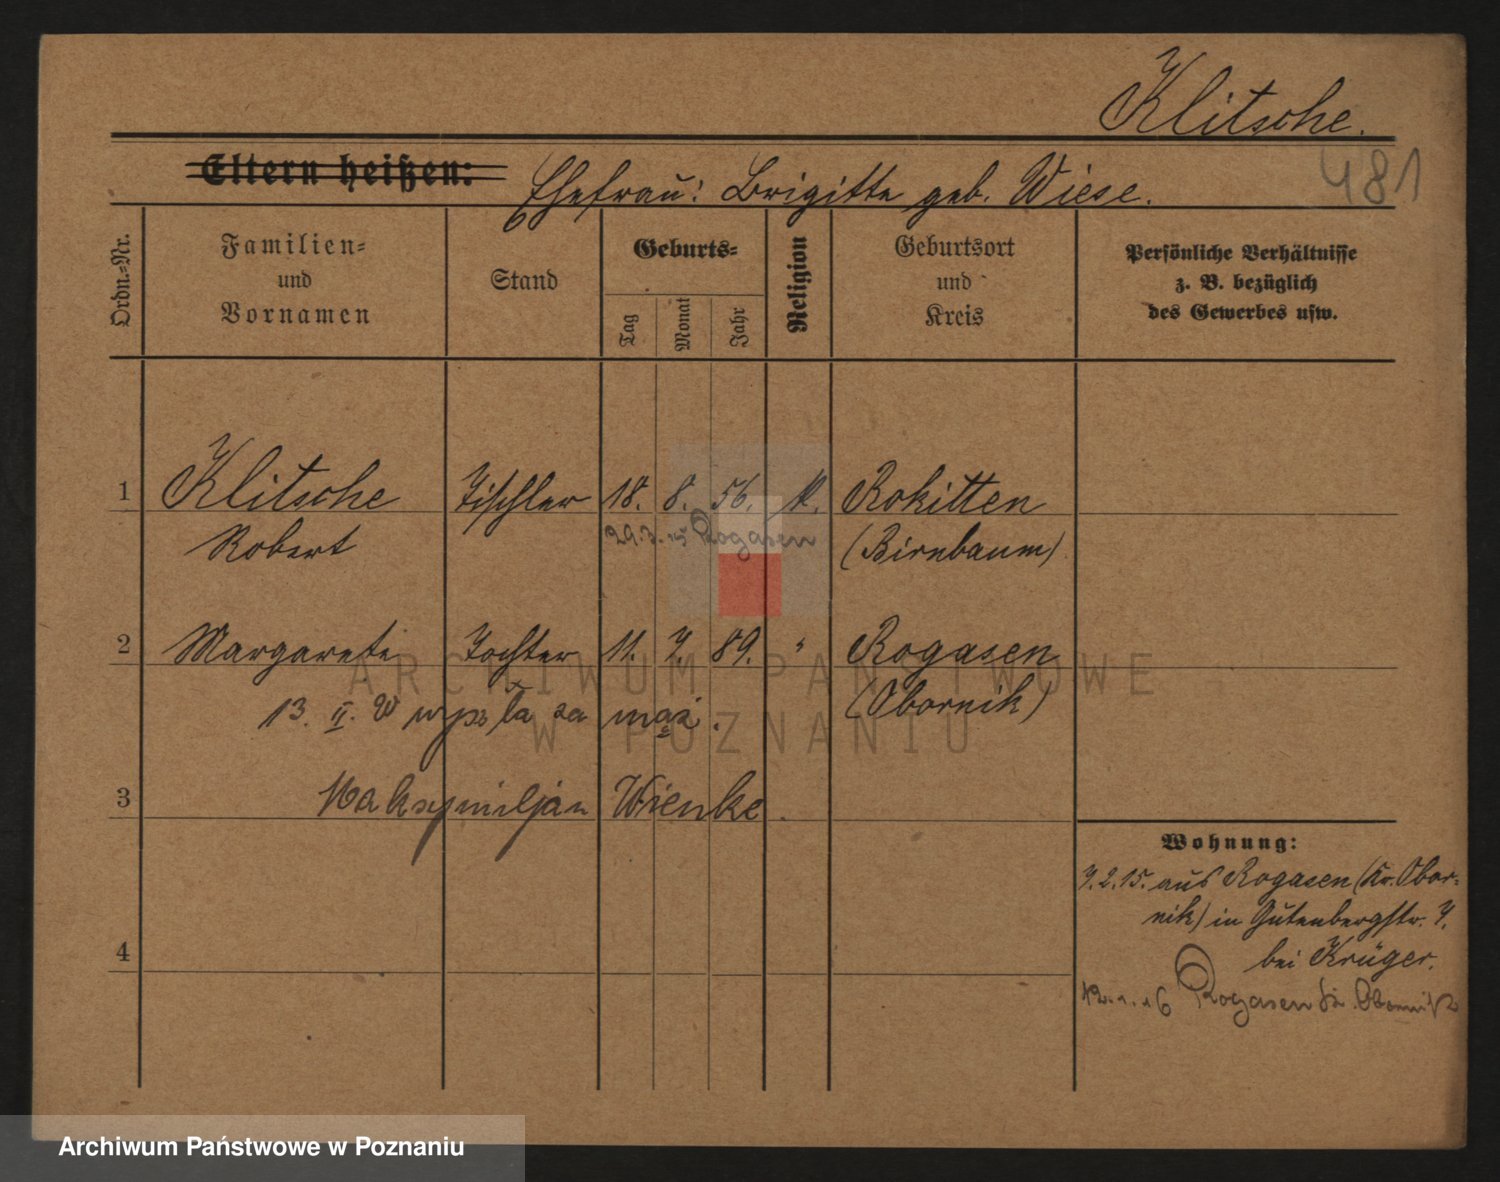 Klitsche.
481
Eltern heißen:
Ehefrau: Brigitte geb. Wiese.
Ordn.=Nr.
Familien=
und
Vornamen
Stand
Geburts=
Tag
Monat
Jahr
Religion
Geburtsort
und
Kreis
Persönliche Verhältnisse
z. B. bezüglich
des Gewerbes usw.
1 Klitsche Tischler 18. 8. 56. k. Rokitten
Robert (Birnbaum)
29.3.15 Rogasen
2 Margarete Tochter 11. 7. 89. " Rogasen
(Obornik)
13. II. za mąż.
3 Maksymiljan Wienke.
4
Wohnung:
7.2.15. aus Rogasen (Kr. Obor=
nik) in Gutenbergstr. 7.
bei Krüger.
Rogasen Kr. Obornik
ARCHIWUM PAŃSTWOWE
W POZNANIU
Archiwum Państwowe w Poznaniu